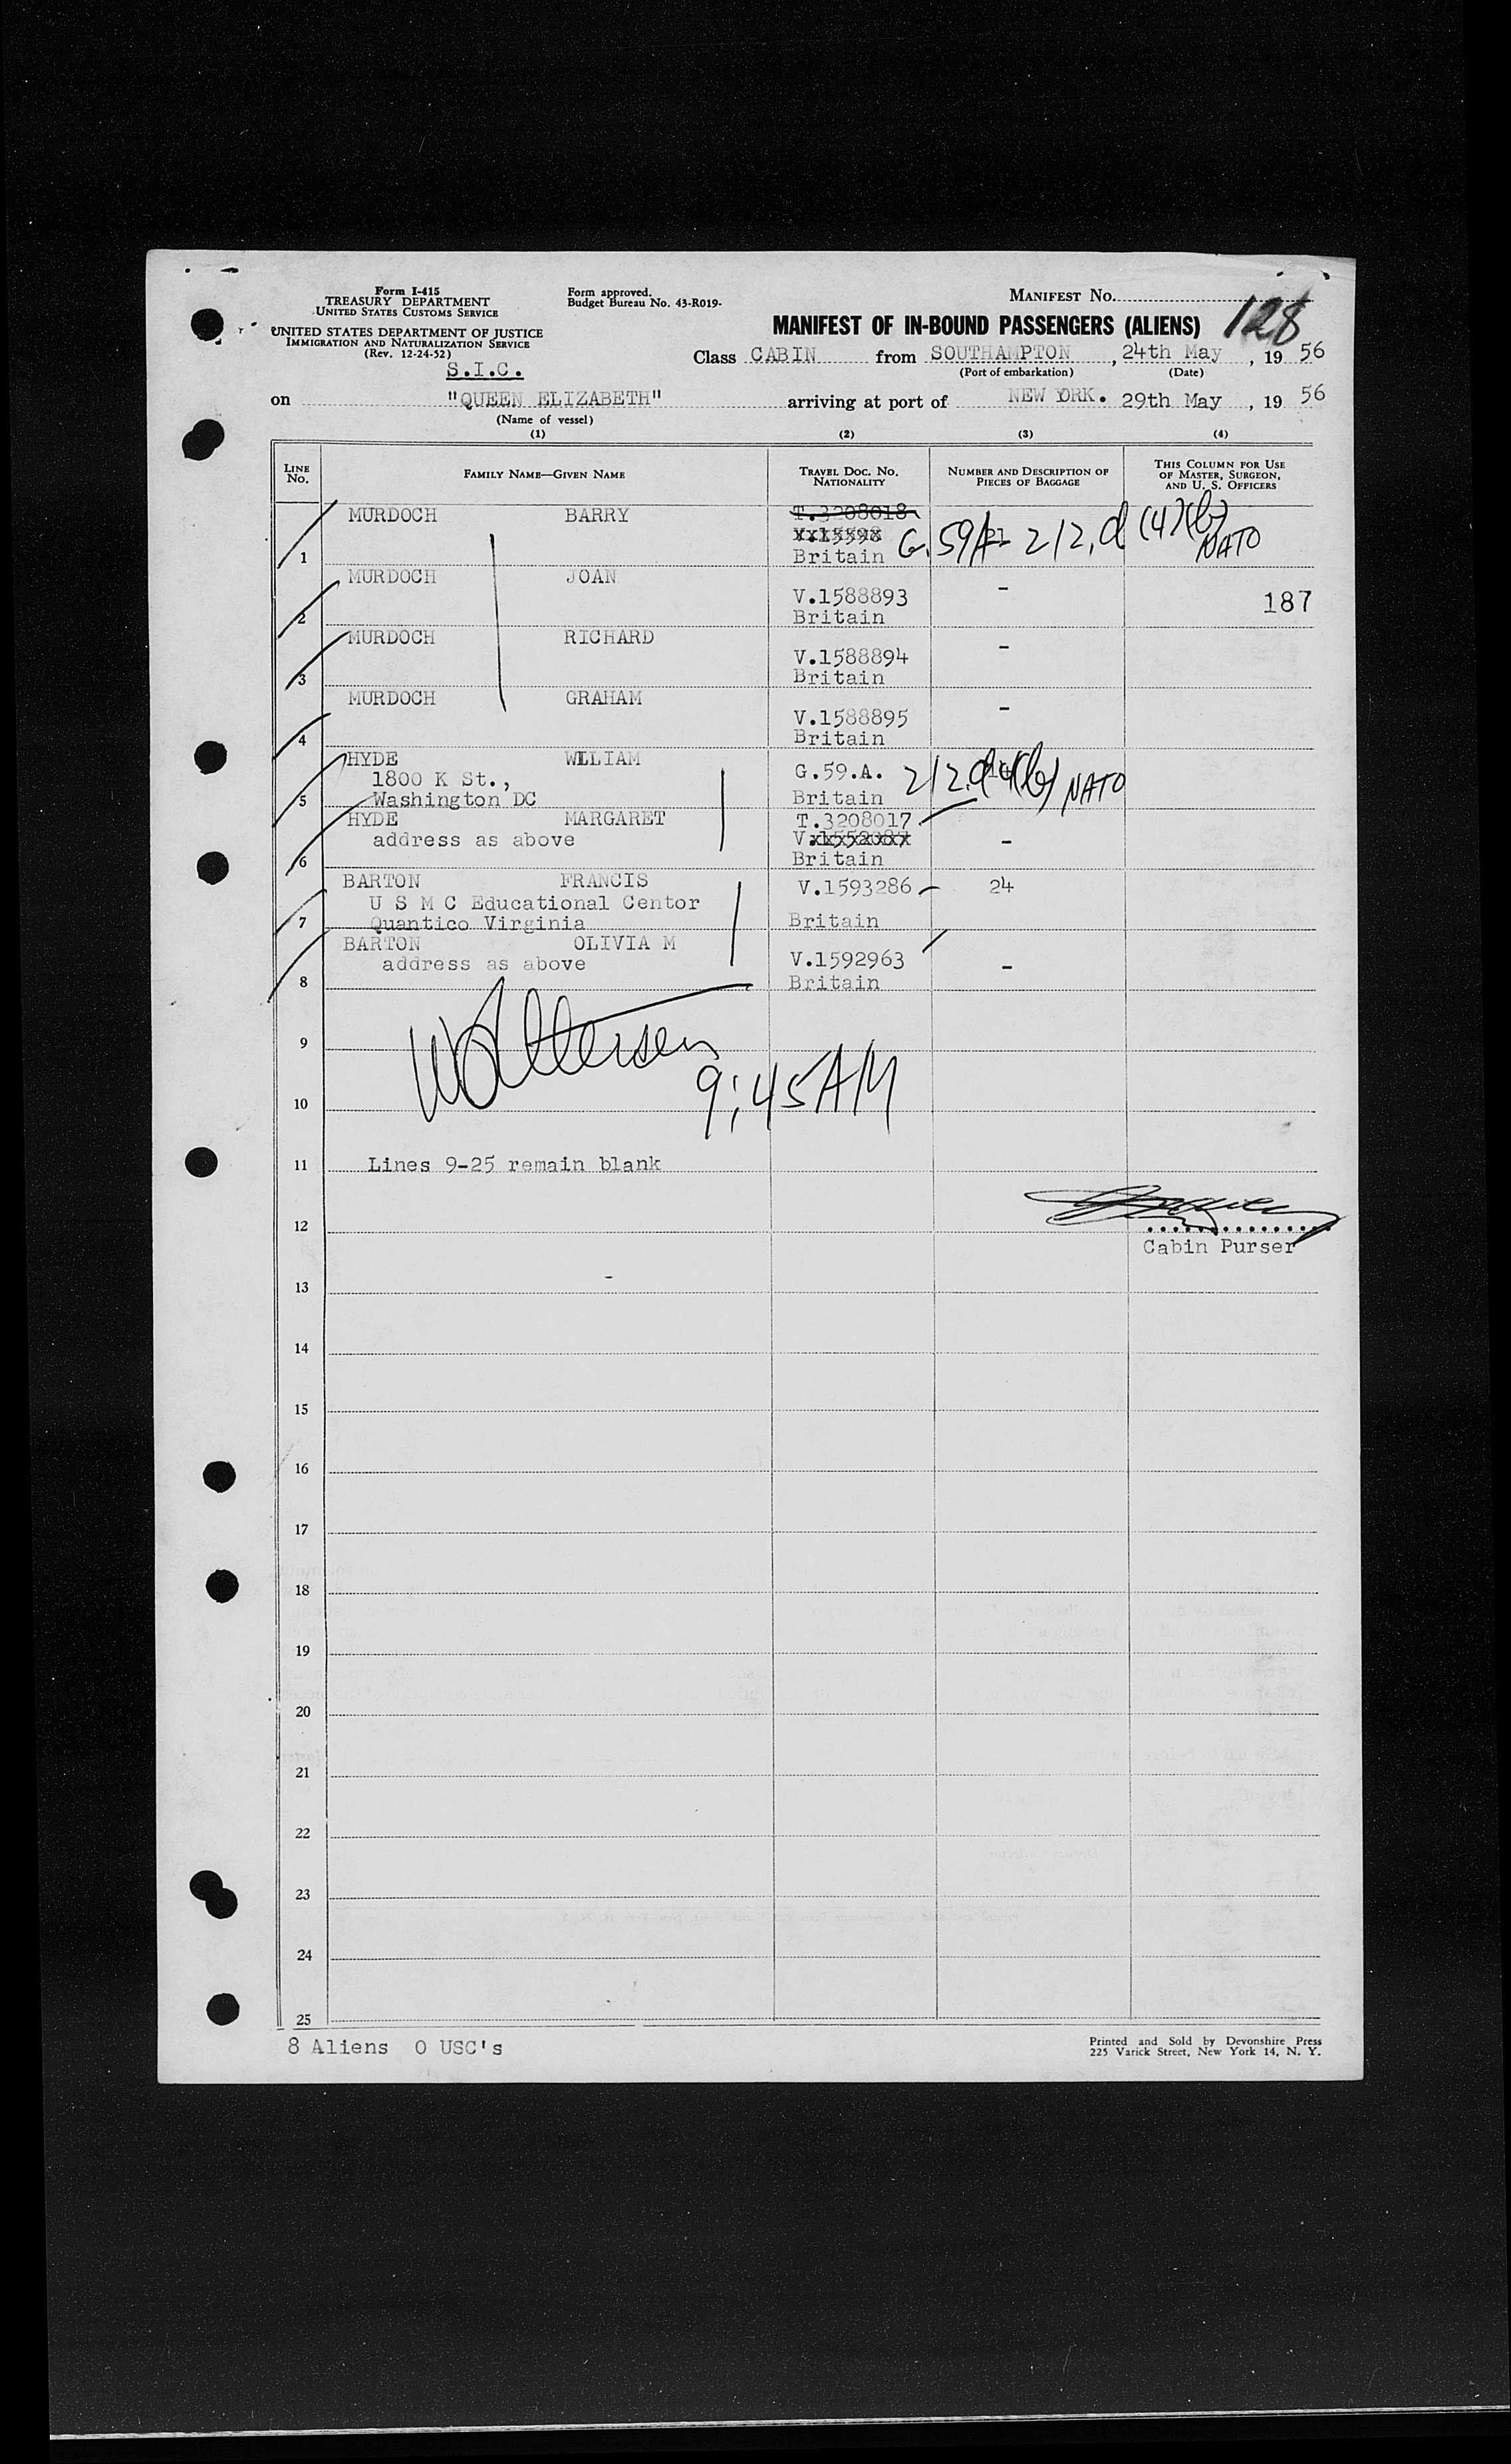 Form I-415
TREASURY DEPARTMENT
UNITED STATES CUSTOMS SERVICE
UNITED STATES DEPARTMENT OF JUSTICE
IMMIGRATION AND NATURALIZATION SERVICE
(Rev. 12-24-52)
S.I.C.
Form approved.
Budget Bureau No. 43-R019-
MANIFEST NO.
128
MANIFEST OF IN-BOUND PASSENGERS (ALIENS)
Class CABIN from SOUTHAMPTON, 24th May, 19 56
(Port of embarkation) (Date)
on "QUEEN ELIZABETH" arriving at port of NEW YORK. 29th May, 19 56
(Name of vessel)
(1) (2) (3) (4)
LINE No. FAMILY NAME—GIVEN NAME TRAVEL DOC. NO. NATIONALITY NUMBER AND DESCRIPTION OF PIECES OF BAGGAGE THIS COLUMN FOR USE OF MASTER, SURGEON, AND U. S. OFFICERS
MURDOCH BARRY T.3208018
1 Britain G. 59A 212.d (4)(b) NATO
MURDOCH JOAN
V.1588893 - 187
2 Britain
MURDOCH RICHARD
V.1588894 -
3 Britain
MURDOCH GRAHAM
V.1588895 -
4 Britain
HYDE WLLIAM
1800 K St., G.59.A. 212.d4(b) NATO
5 Washington DC Britain
HYDE MARGARET T.3208017
address as above -
6 Britain
BARTON FRANCIS V.1593286 24
U S M C Educational Centor
7 Quantico Virginia Britain
BARTON OLIVIA M
address as above V.1592963 -
8 Britain
9
9:45AM
10
11 Lines 9-25 remain blank
12
Cabin Purser
13
14
15
16
17
18
19
20
21
22
23
24
25
8 Aliens 0 USC's
Printed and Sold by Devonshire Press
225 Varick Street, New York 14, N. Y.